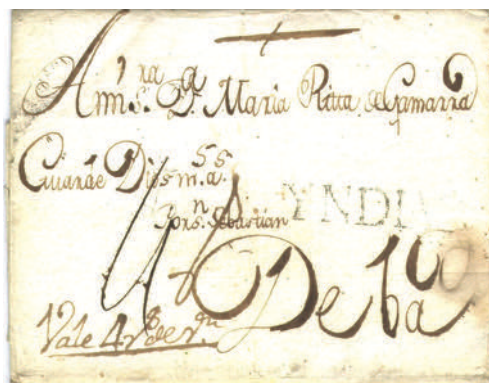 A mi S.ra D.a Maria Ritta de Gamarra
Guarde Dios m.s a.s
S.n Sebastian
YNDI
Deba
Vale 4 r.s de v.n